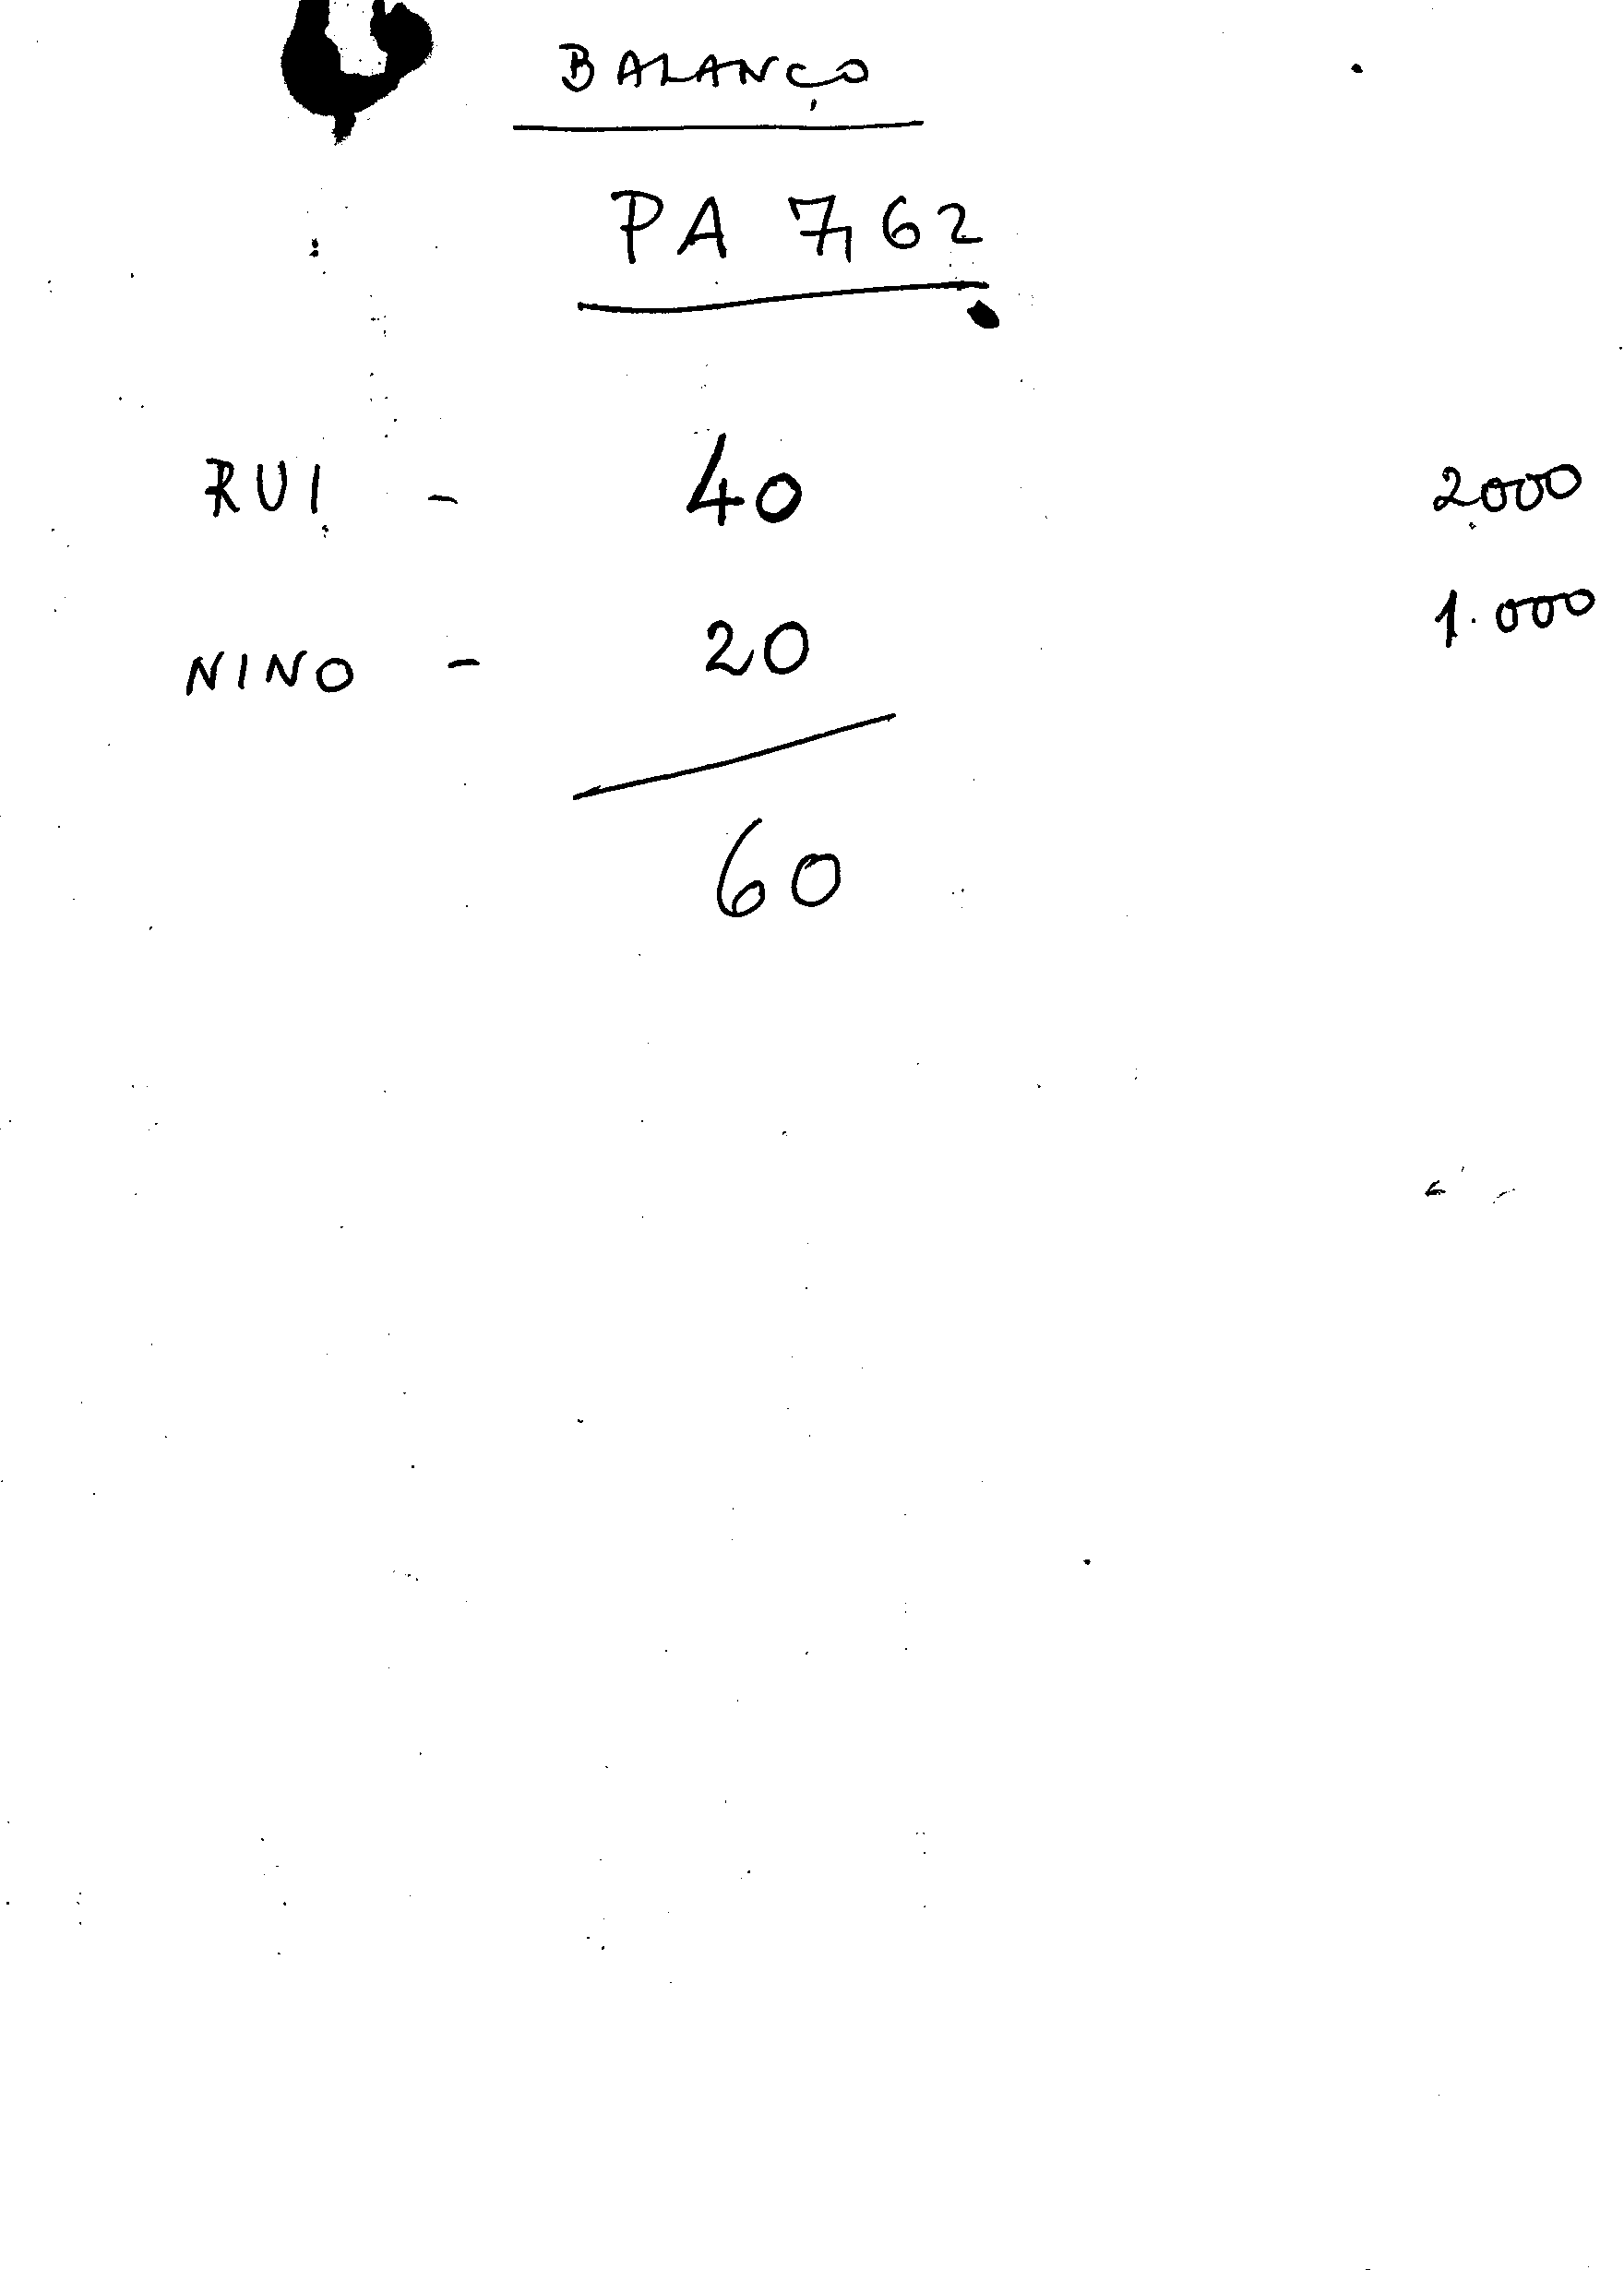 BALANÇO
PA 7,62
RUI - 40 2000
NINO - 20 1.000
60